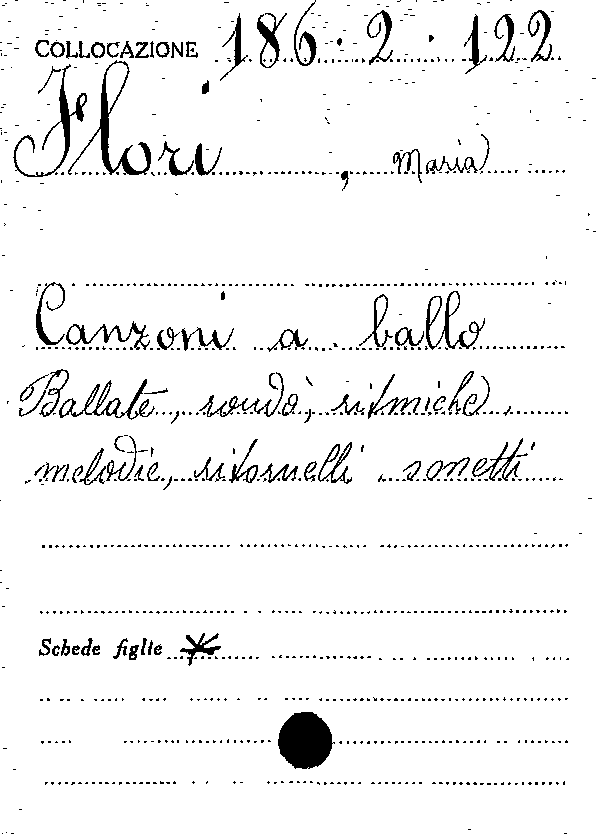 COLLOCAZIONE 186 · 2 · 122
Flori , Maria
Canzoni a ballo
Ballate, rondò, ritmiche
melodie, ritornelli sonetti
Schede figlie *